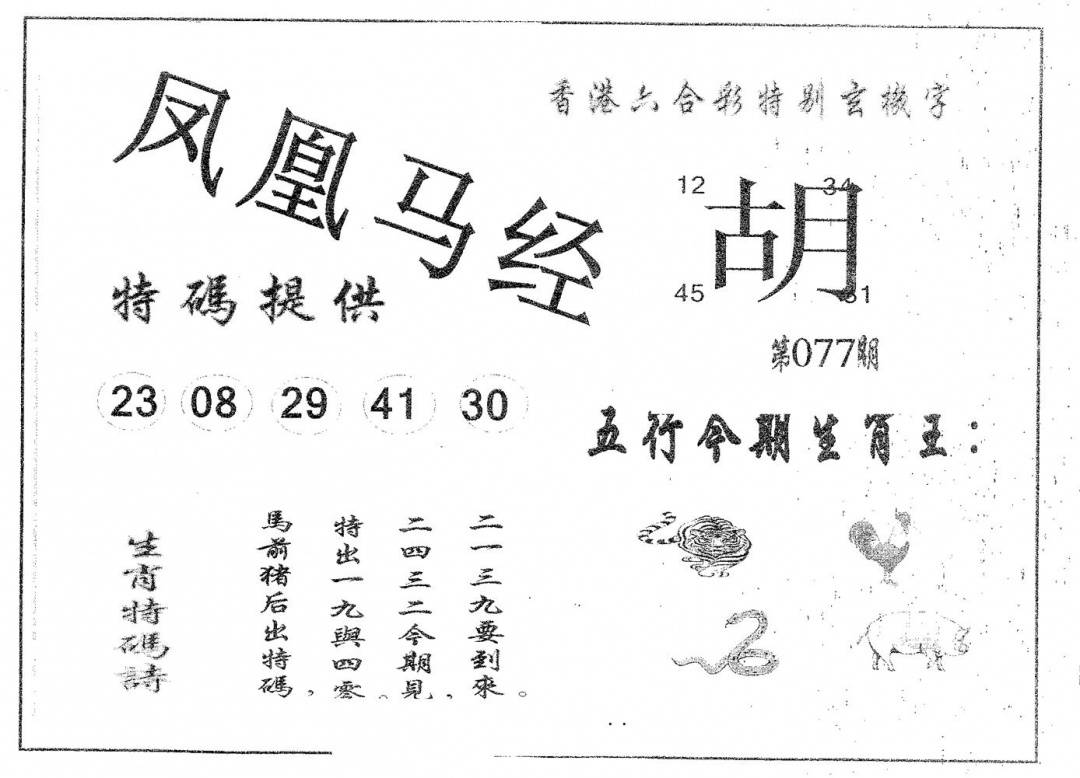 香港六合彩特别玄機字
凤凰马经
12
34
胡
45
31
特碼提供
第077期
23 08 29 41 30
五行今期生肖王：
生肖特碼詩
馬前猪后出特碼，
特出一九與四零。
二四三二今期見，
二一三九要到來。